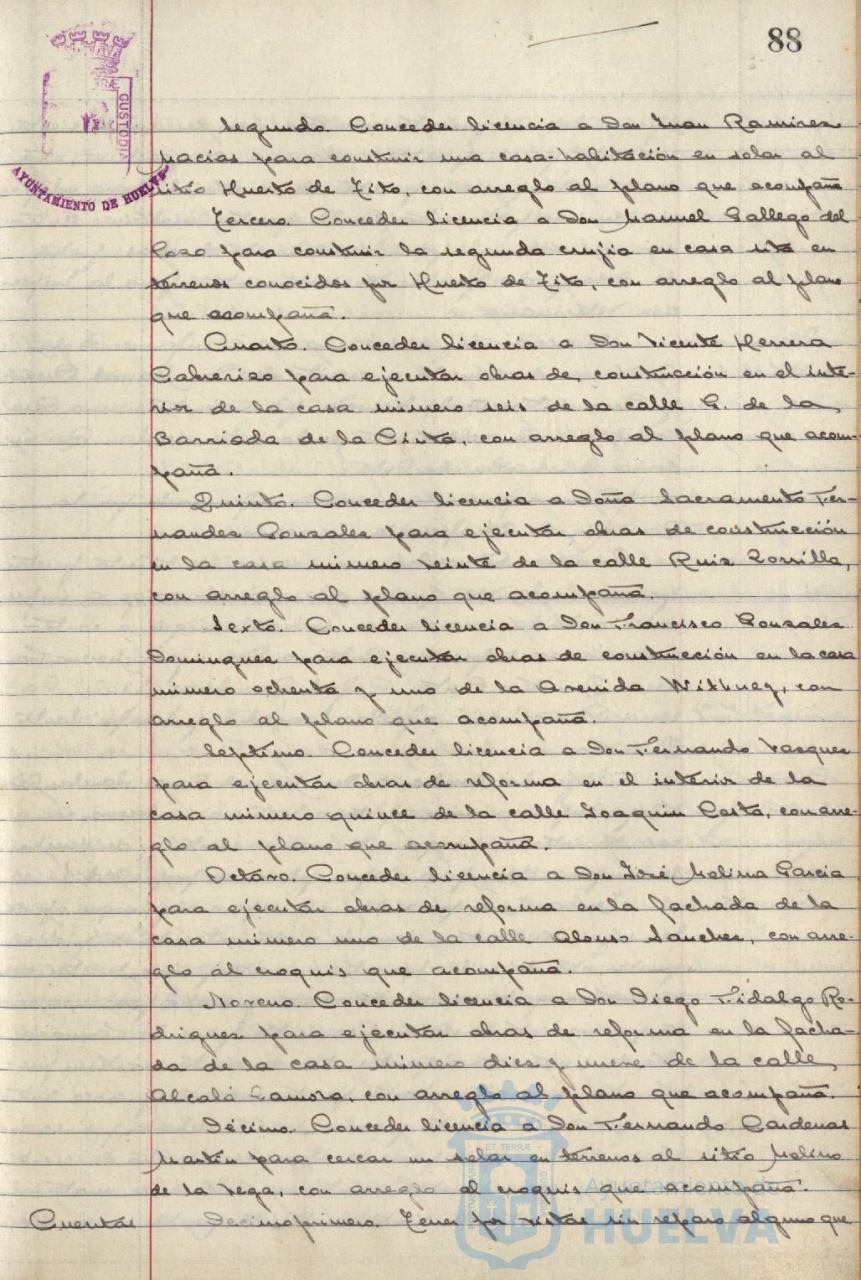 88
CUSTODIA
AYUNTAMIENTO DE HUELVA
Segundo. Conceder licencia a Don Juan Ramirez
Macias para construir una casa-habitación en solar al
sitio Huerto de Tito, con arreglo al plano que acompaña
Tercero. Conceder licencia a Don Manuel Gallego del
Pozo para construir la segunda crujia en casa sita en
terrenos conocidos por Huerto de Tito, con arreglo al plano
que acompaña.
Cuarto. Conceder licencia a Don Vicente Herrera
Cabrerizo para ejecutar obras de construcción en el inte-
rior de la casa número seis de la calle G. de la
Barriada de la Cinta, con arreglo al plano que acom-
paña.
Quinto. Conceder licencia a Doña Sacramento Fer-
nandez Gonzalez para ejecutar obras de construcción
en la casa número veinte de la calle Ruiz Zorrilla,
con arreglo al plano que acompaña.
Sexto. Conceder licencia a Don Francisco Gonzalez
Dominguez para ejecutar obras de construcción en la casa
número ochenta y uno de la Avenida Withney, con
arreglo al plano que acompaña.
Septimo. Conceder licencia a Don Fernando Vazquez
para ejecutar obras de reforma en el interior de la
casa número quince de la calle Joaquin Costa, con arre-
glo al plano que acompaña.
Octavo. Conceder licencia a Don José Molina Garcia
para ejecutar obras de reforma en la fachada de la
casa número uno de la calle Alonso Sanchez, con arre-
glo al croquis que acompaña.
Noveno. Conceder licencia a Don Diego Fidalgo Ro-
driguez para ejecutar obras de reforma en la facha-
da de la casa número diez y nueve de la calle
Alcalá Zamora, con arreglo al plano que acompaña.
Décimo. Conceder licencia a Don Fernando Cardenas
Martín para cercar un solar en terrenos al sitio Molino
de la Vega, con arreglo al croquis que acompaña.
Cuentas Decimoprimero. Tener por vistas sin reparo alguno que
ET TERRÆ
Ayuntamiento de
HUELVA